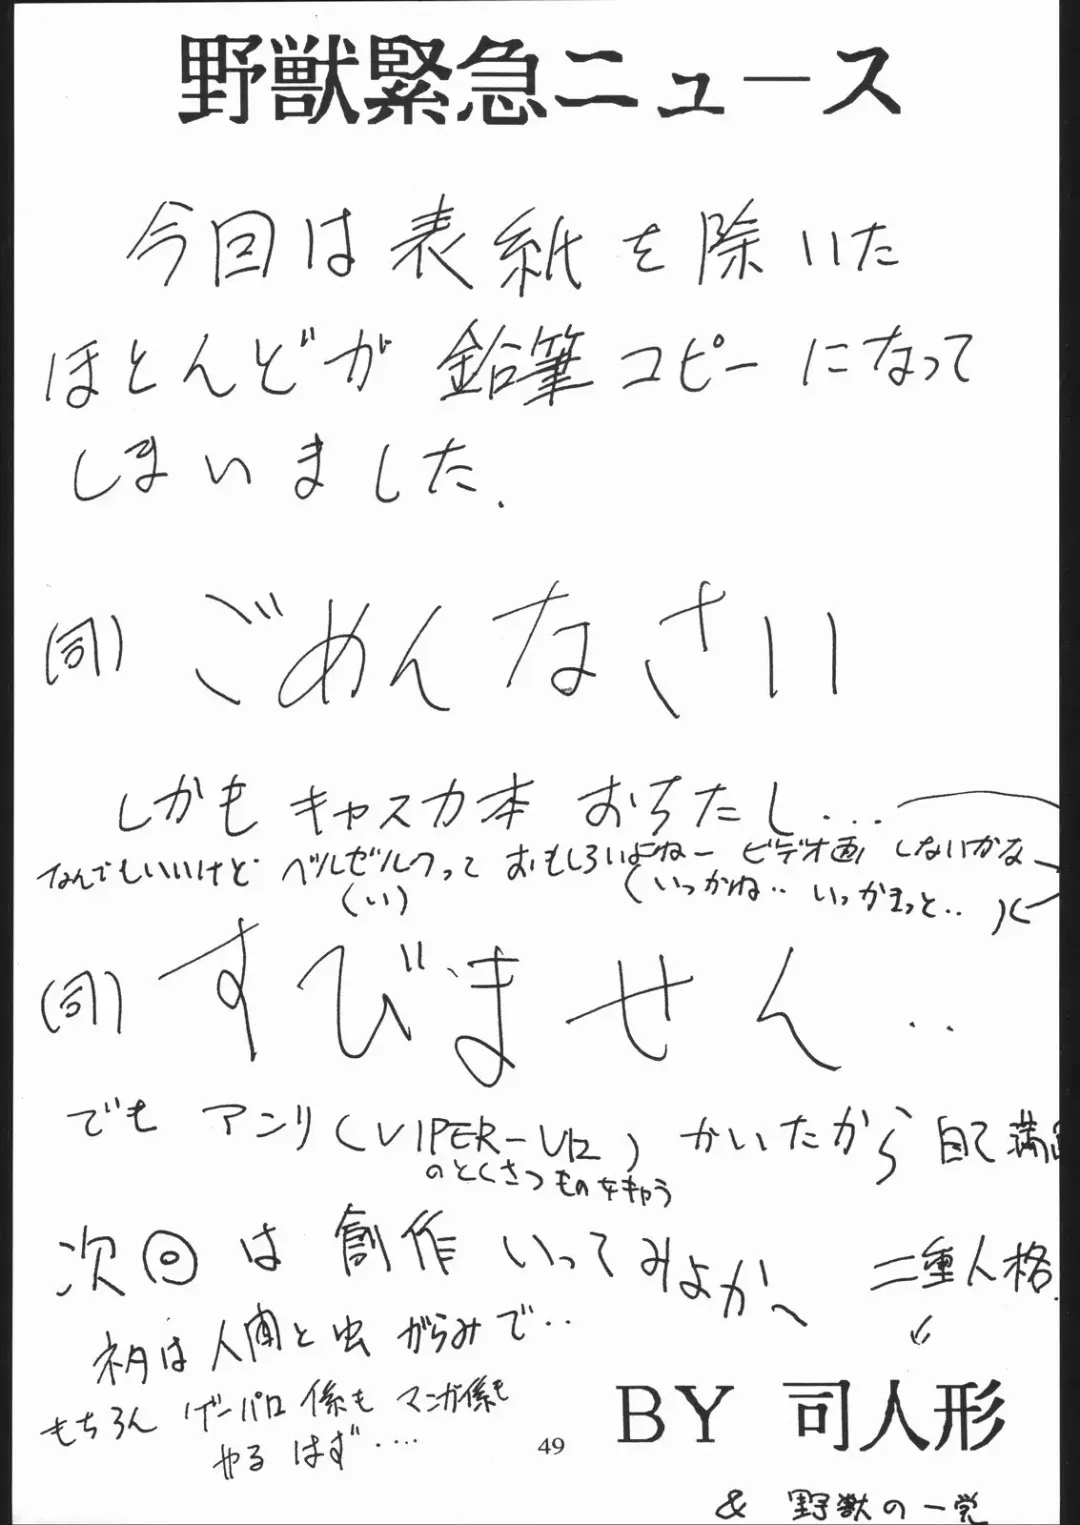 野獣緊急ニュース
今回は表紙を除いた
ほとんどが鉛筆コピーになって
しまいました.
(司) ごめんなさい
しかもキャスカ本 おちたし...
なんでもいいけど ベルゼルクっておもしろいよねー ビデオ画しないかな
(い) (いっかね.. いっかまっと.. )
(司) すびません..
でも アンリ (VIPER-V12) かいたから 自己満足
のとくさつものをキャラ
次回は創作いってみよかへ
二重人格.
初は人間と虫がらみで..
もちろん ゲーパロ係も マンガ係も
やるはず....
BY 司人形
49
& 野獣の一党